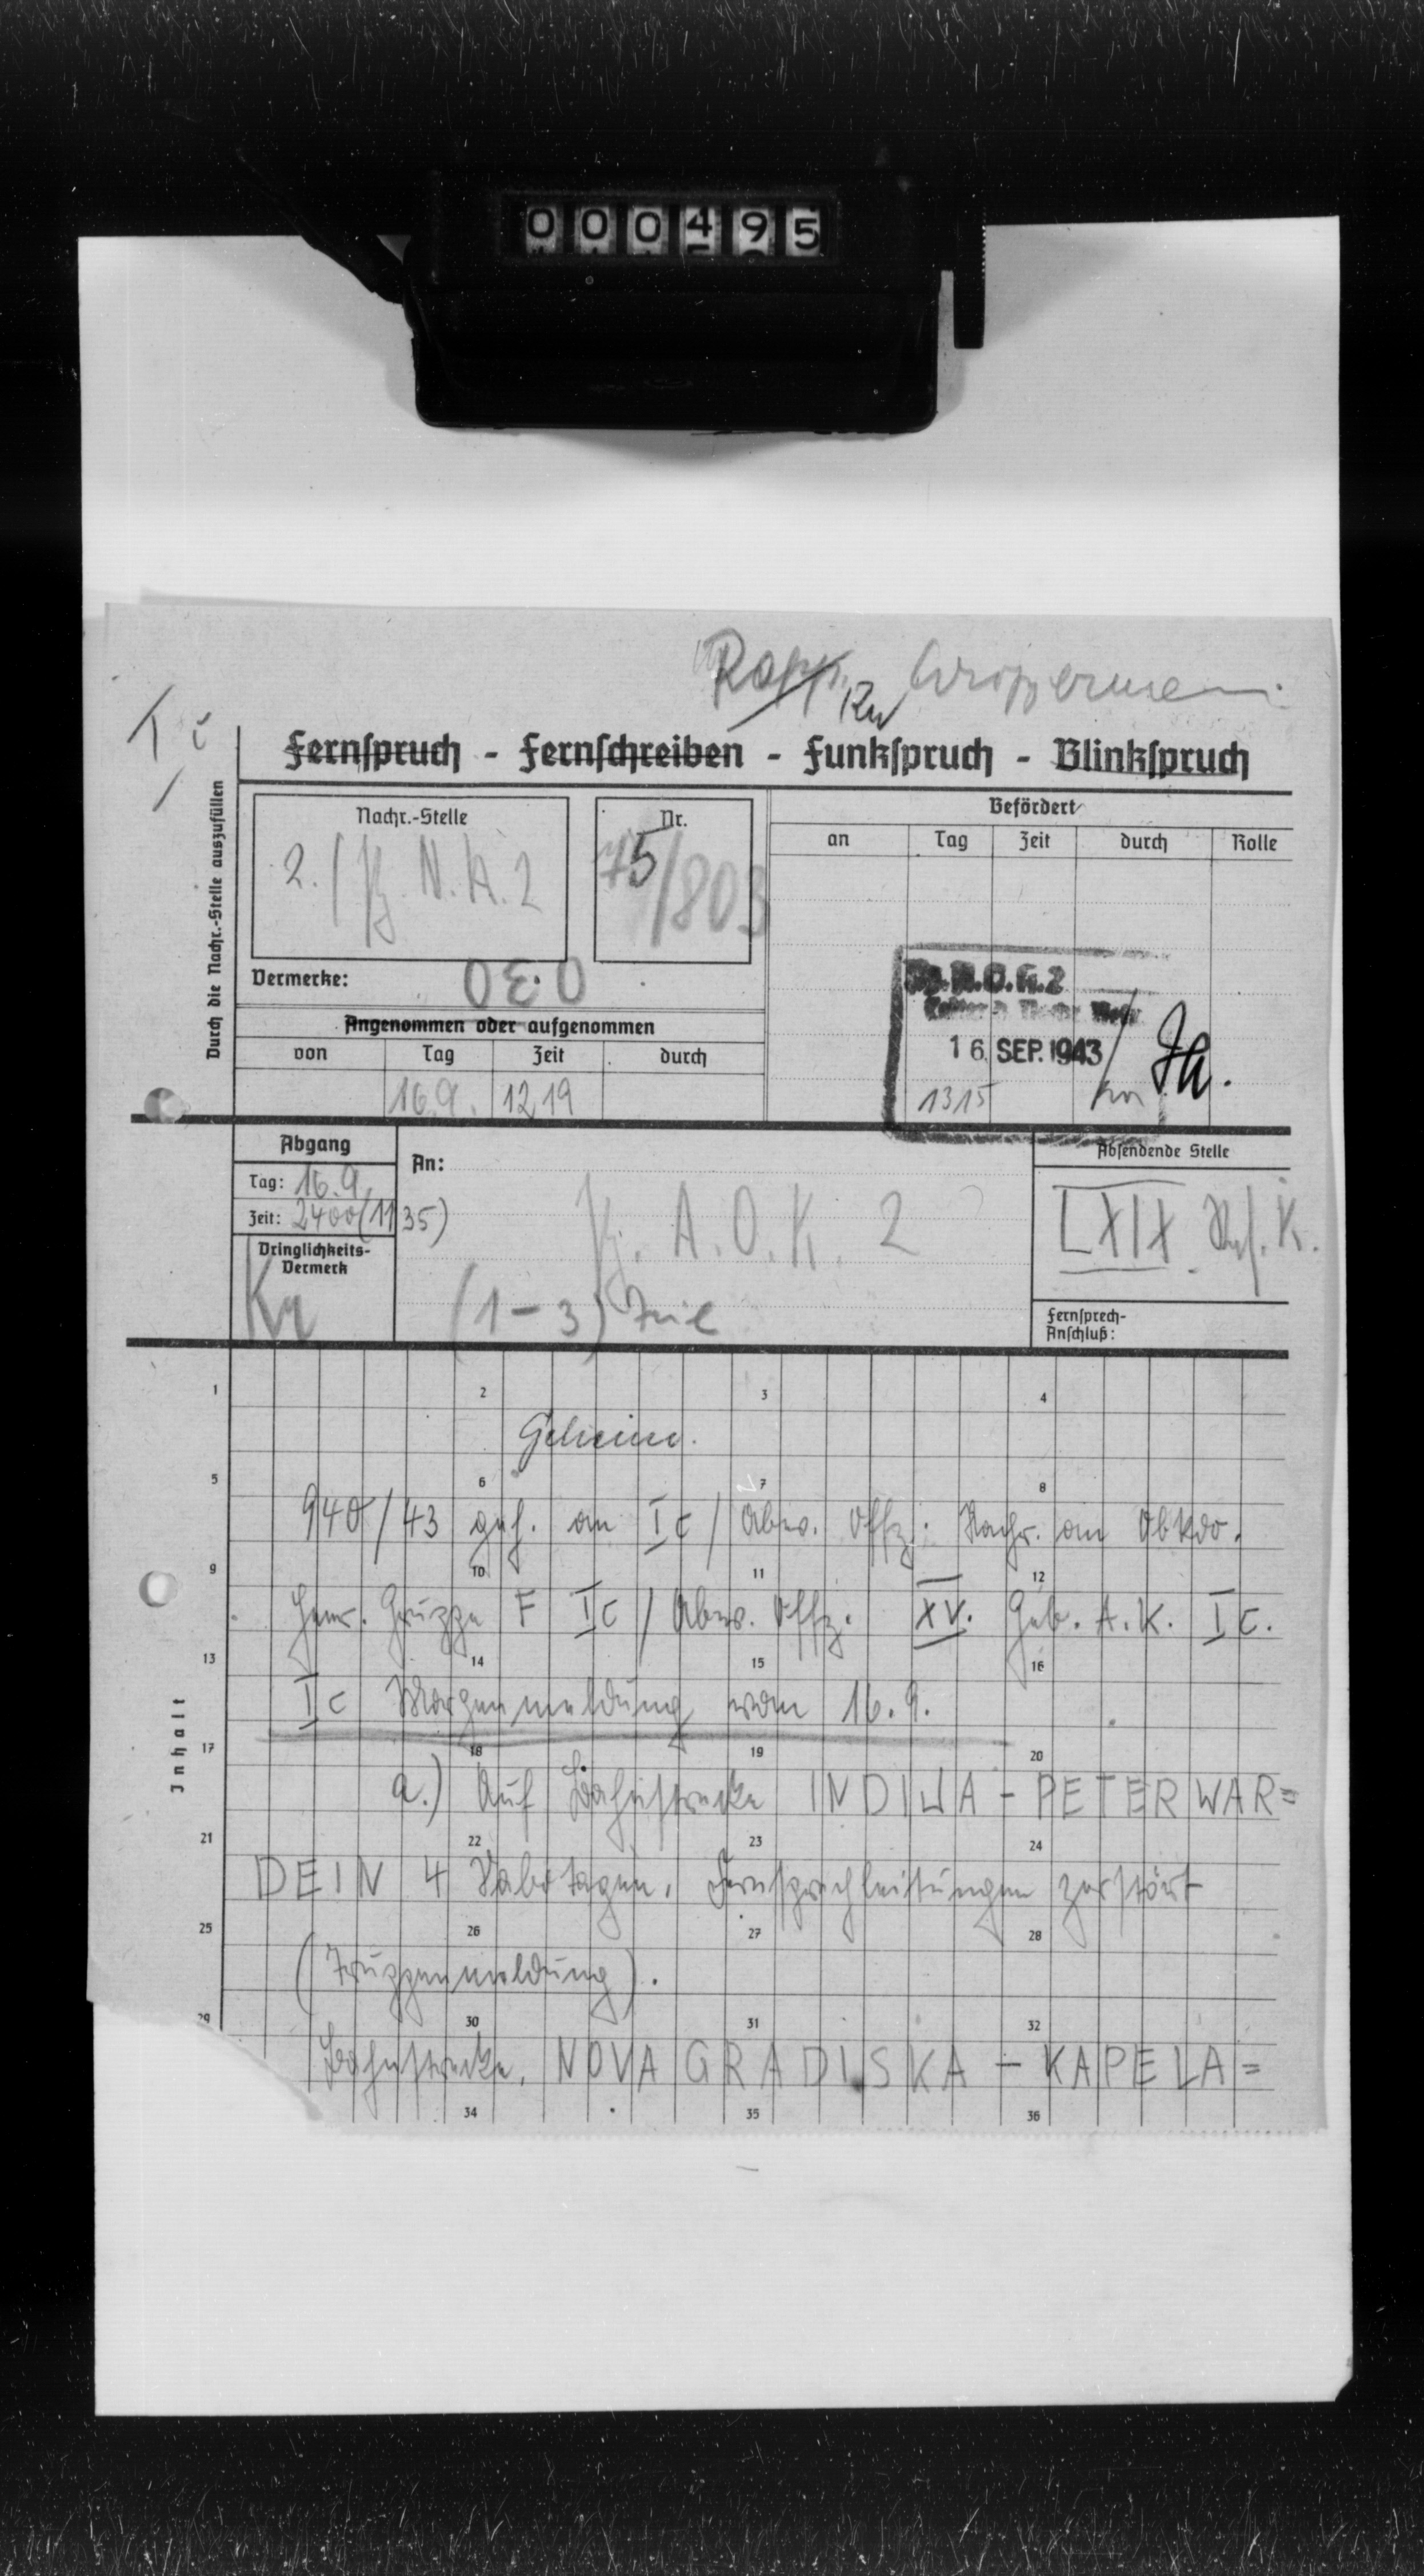 000495
Ic
Fernspruch - Fernschreiben - Funkspruch - Blinkspruch
Durch die Nachr.-Stelle auszufüllen
Nachr.-Stelle
2./Pz. N.A. 2
Nr.
75/803
Befördert
an Tag Zeit durch Rolle
Vermerke:
Angenommen oder aufgenommen
von Tag Zeit durch
16.9. 1219
Pz.A.O.K.2
16. SEP. 1943
1315
Abgang
Tag: 16.9.
Zeit: 2400 (1135)
Dringlichkeits-
Vermerk
Kr
An:
Pz. A.O.K. 2
(1-3) Teil
Absendende Stelle
LXIX. Res. K.
Fernsprech-
Anschluß:
Inhalt
1 2 3 4
Geheim.
5 6 7 8
940/43 geh. an Ic/Abw. Offz. Nachr. an Obkdo.
9 10 11 12
Heer. Gruppe F Ic/Abw. Offz. XV. Geb. A.K. Ic.
13 14 15 16
Ic Morgenmeldung vom 16.9.
17 18 19 20
a.) Auf Bahnstrecke INDIJA - PETERWAR=
21 22 23 24
DEIN 4 Sabotagen. Fernsprechleitungen zerstört
25 26 27 28
(Truppenmeldung).
29 30 31 32
Bahnstrecke NOVA GRADISKA - KAPELA=
34 35 36